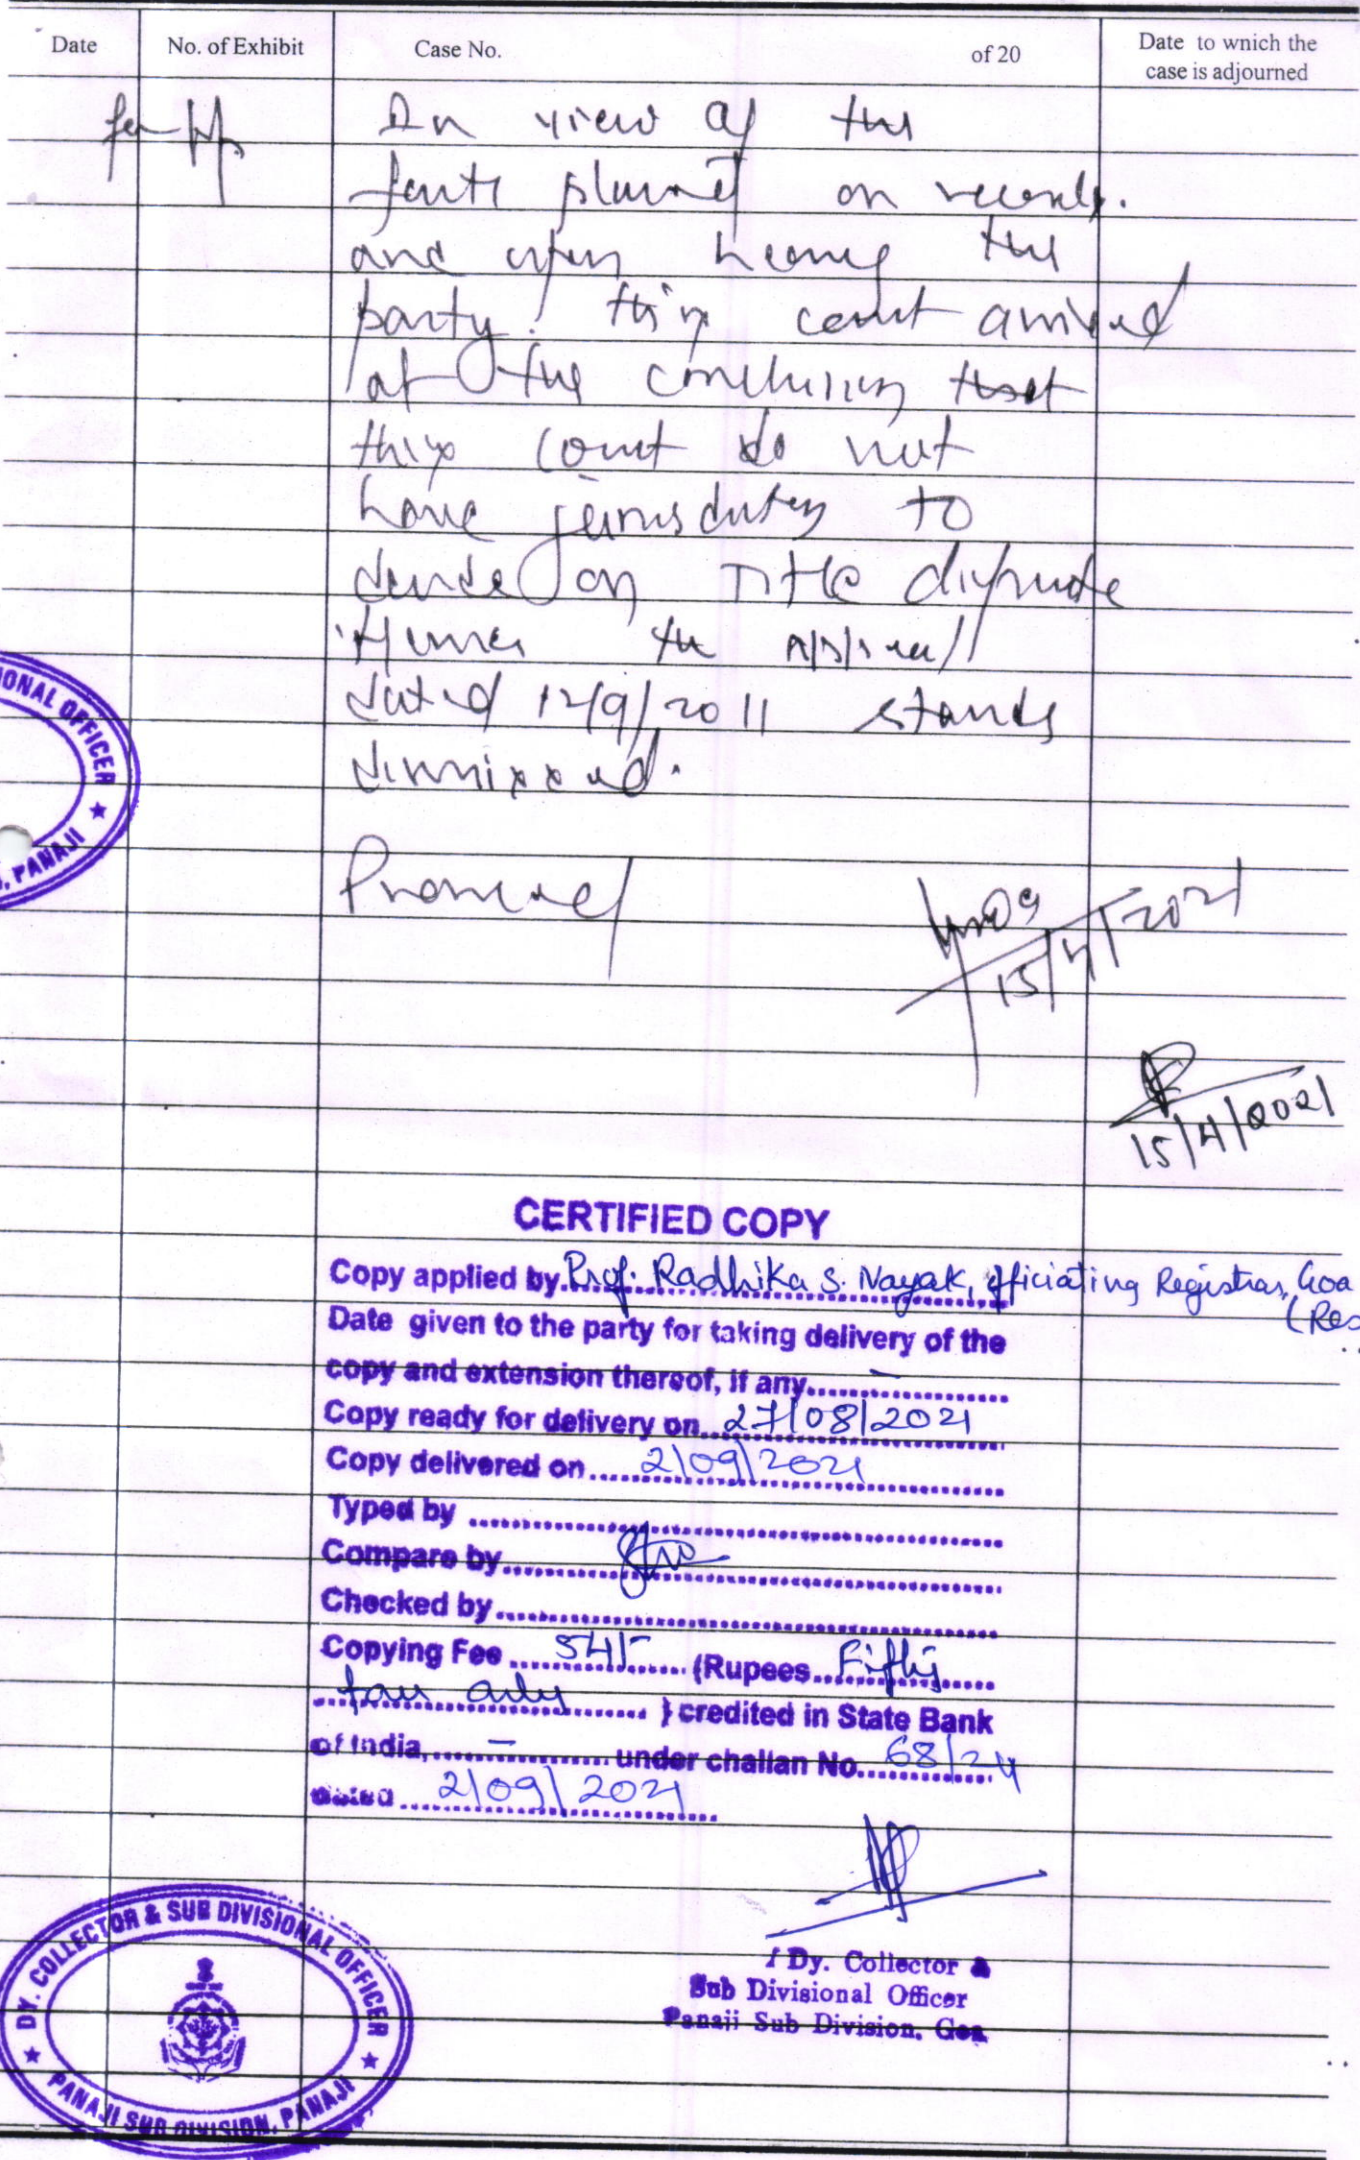 Date No. of Exhibit Case No. of 20 Date to which the
case is adjourned
In view of the
facts placed on records.
and upon hearing the
party. this court arrived
at the conclusion that
this court do not
have jurisdiction to
decide on Title dispute
Hence the appeal
dated 12/9/2011 stands
dismissed.
Pronounced
15/4/2021
15/4/2021
IONAL OFFICER ★
, PANAJI
CERTIFIED COPY
Copy applied by Prof. Radhika S. Nayak, Officiating Registrar, Goa
(Res
Date given to the party for taking delivery of the
copy and extension thereof, if any........–........
Copy ready for delivery on 27/08/2021
Copy delivered on 2/09/2021
Typed by
Compare by
Checked by
Copying Fee 54/- (Rupees Fifty
four only ) credited in State Bank
of India, – under challan No. 68/24
dated 2/09/2021
/ Dy. Collector &
Sub Divisional Officer
Panaji Sub Division, Goa
DY. COLLECTOR & SUB DIVISIONAL OFFICER
★ PANAJI SUB DIVISION, PANAJI ★